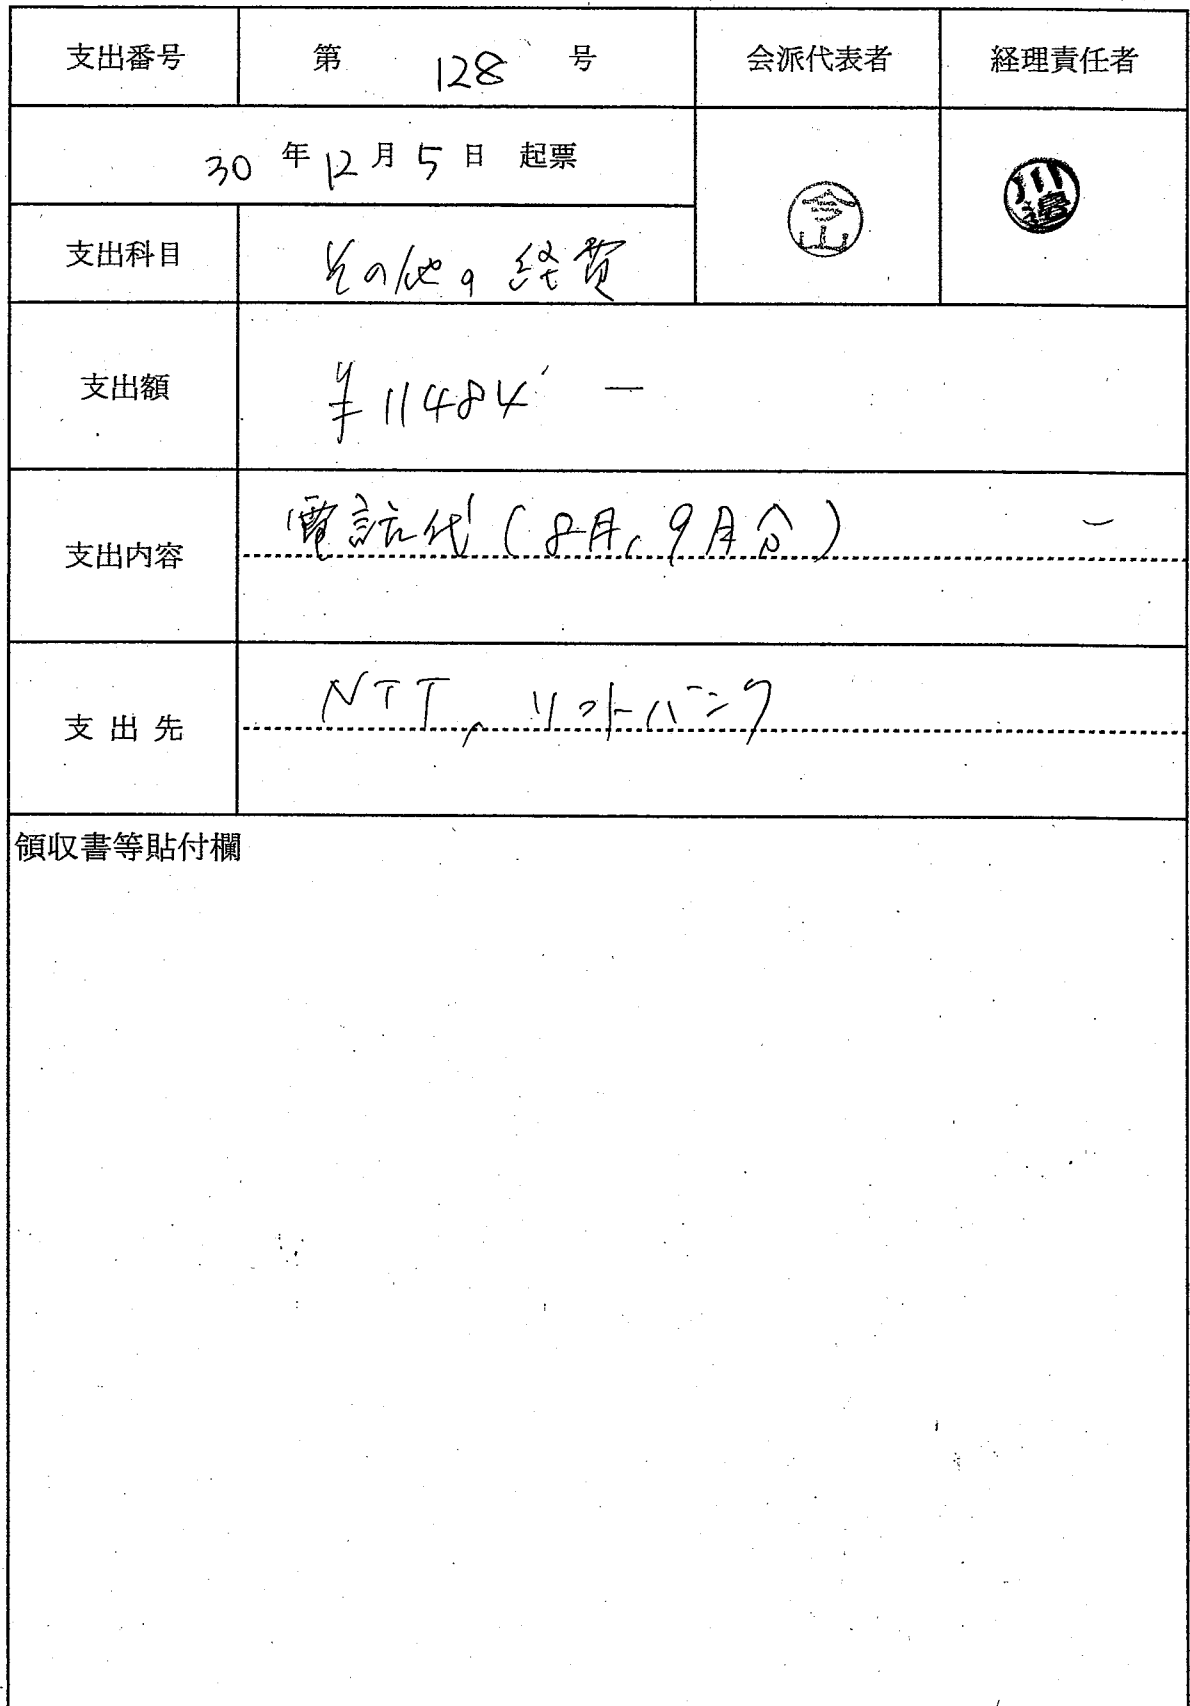 支出番号 第 128 号 会派代表者 経理責任者
30 年 12 月 5 日 起票
今山
川邉
支出科目 その他の経費
支出額 ¥11484 ー
支出内容 電話代(8月、9月分) ー
支出先 NTT、ソフトバンク
領収書等貼付欄